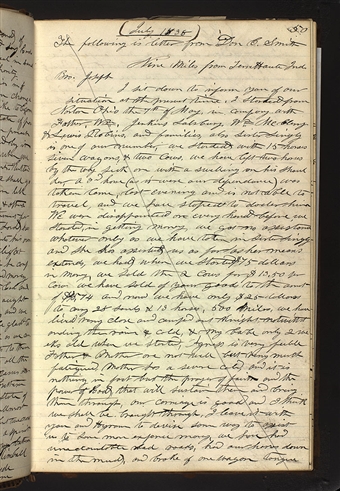 July 1838
50
The following is letter from Don C. Smith
Nine Miles from Terre Haute Ind
Bro. Joseph
I set down to inform you of our
situation at the present time. I started from
Norton Ohio the 7th of May in company with
Father, Wm, Jenkins Salsbury, Wm McClary
& Lewis Robins, and families, also Sister Singly
is one of our number, we started with 15 horses
seven wagons & two cows, we have left two horses
by the way sick one with a swelling on his shoul
der a 3rd horse (as it were our dependence) was
taken lame last evening and is not able to
travel, and we have stopped to doctor him
We were disappointed on every hand before we
started in getting money, we got no assistance
whatever only as we have taken in Sister Singly
and she has assisted us as far as her means
extends, we had when we started 75 dollars
in money, we sold the 2 cows for $13,50 per
cow we have sold of your goods to the amt
of $45,74 and now we have only $25 dollars
to carry 28 souls & 13 horses, 500 miles, we have
lived very close and camped out knight notwith
standing the rain & cold, & my babe only 2 weeks
old when we started, Agness is very feeble
Father & Mother are not well but very much
fatigued, Mother has a severe cold, and it is
nothing in fact but the prayer of faith and the
power of God, that will sustain them and bring
them through, our courage is good and I think
we shall be brought through, I leave it with
you and Hyrum to devise some way to assist
us to some more expence money, we have had
unaccountable bad roads, had our horses down
in the mud, and broke of one wagon tongue